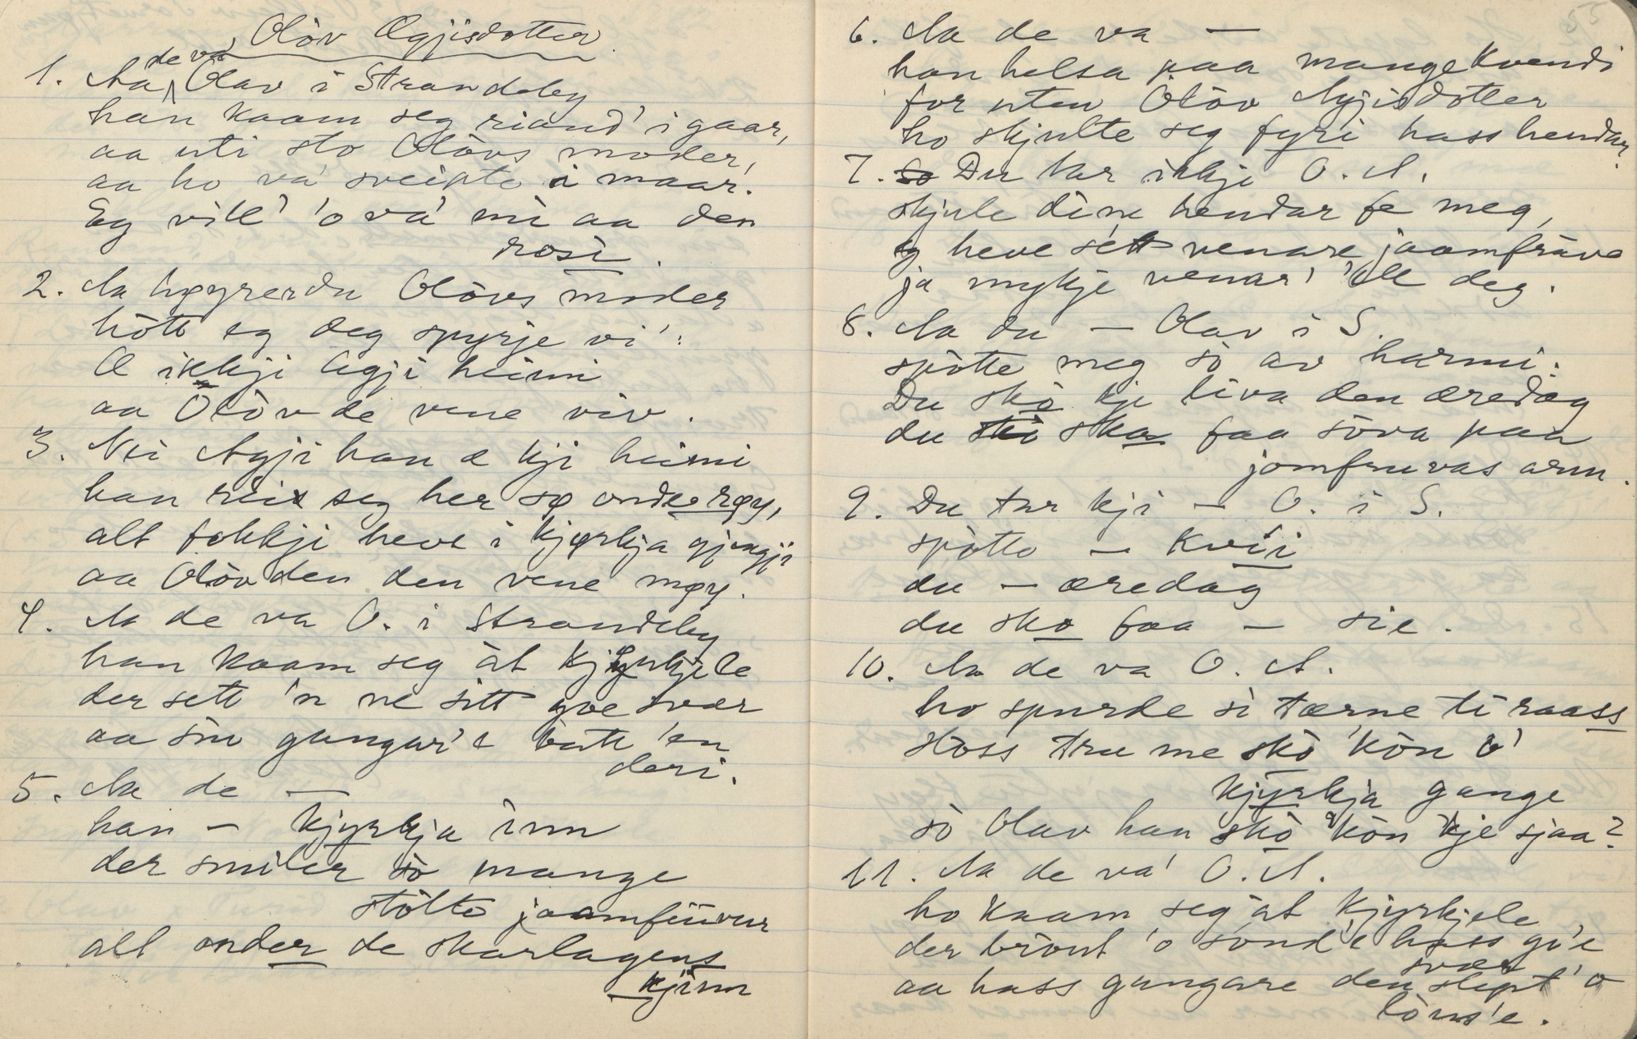 Olòv Ægjisdotter
1. Aa de va Olav i Strandeby
han kaam seg riand' i gaar,
aa uti sto Olòvs moder,
aa ho va' sveipte i maar.
Eg vill' 'o va' mi aa den
rosi.
2. Aa høyrer du Olòvs moder
hòtt eg deg spyrje vi':
Æ ikkji Agji heimi
aa Olòv de vene viv.
3. Nei Agji han æ kji heimi
han rei seg her so onde røy,
alt folkji heve i kjyrkja gjengji
aa Olòv den den vene møy.
4. Aa de va O. i Strandeby
han kaam seg àt kjyrkjele
der sett 'n ne sitt goe svær
aa sin gangar'e batt 'en
deri.
5. Aa de —
han — kjyrkja inn
der smiler sò mange
stòlte jaamfruvur
alt onder de skarlagens
kjinn
55
6. Aa de va —
han helsa paa mange kvendi
for uten Olòv Agjisdotter
ho skjulte seg fyri hass hendar.
7. So Du tar ikkje O. A.
skjule dine hendar fe meg,
eg heve sètt venare jaamfruve
ja mykje venar' 'ell deg.
8. Aa du — Olav i S.
spòtte meg sò av harmi:
Du skò kje liva den æredag
du skò ska faa sòva paa
jomfruvas arm.
9. Du tar kji — O. i S.
spòtte — kvii
du — æredag
du sko faa — sie.
10. Aa de va O. A.
ho spurde si tærne ti raass
Hoss tru me skò kòn ò'
kjyrkja gange
sò Olav han skò 'kòn kje sjaa?
11. Aa de va' O. A.
ho kaam seg àt kjyrkjele
der bròut 'o sond'e hass go'e
svær
aa hass gangare den slept 'o
lòus'e.